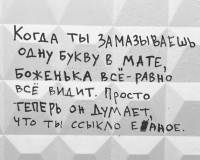 Когда ты замазываешь
одну букву в мате,
боженька всё-равно
всё видит. Просто
теперь он думает,
что ты ссыкло е■аное.